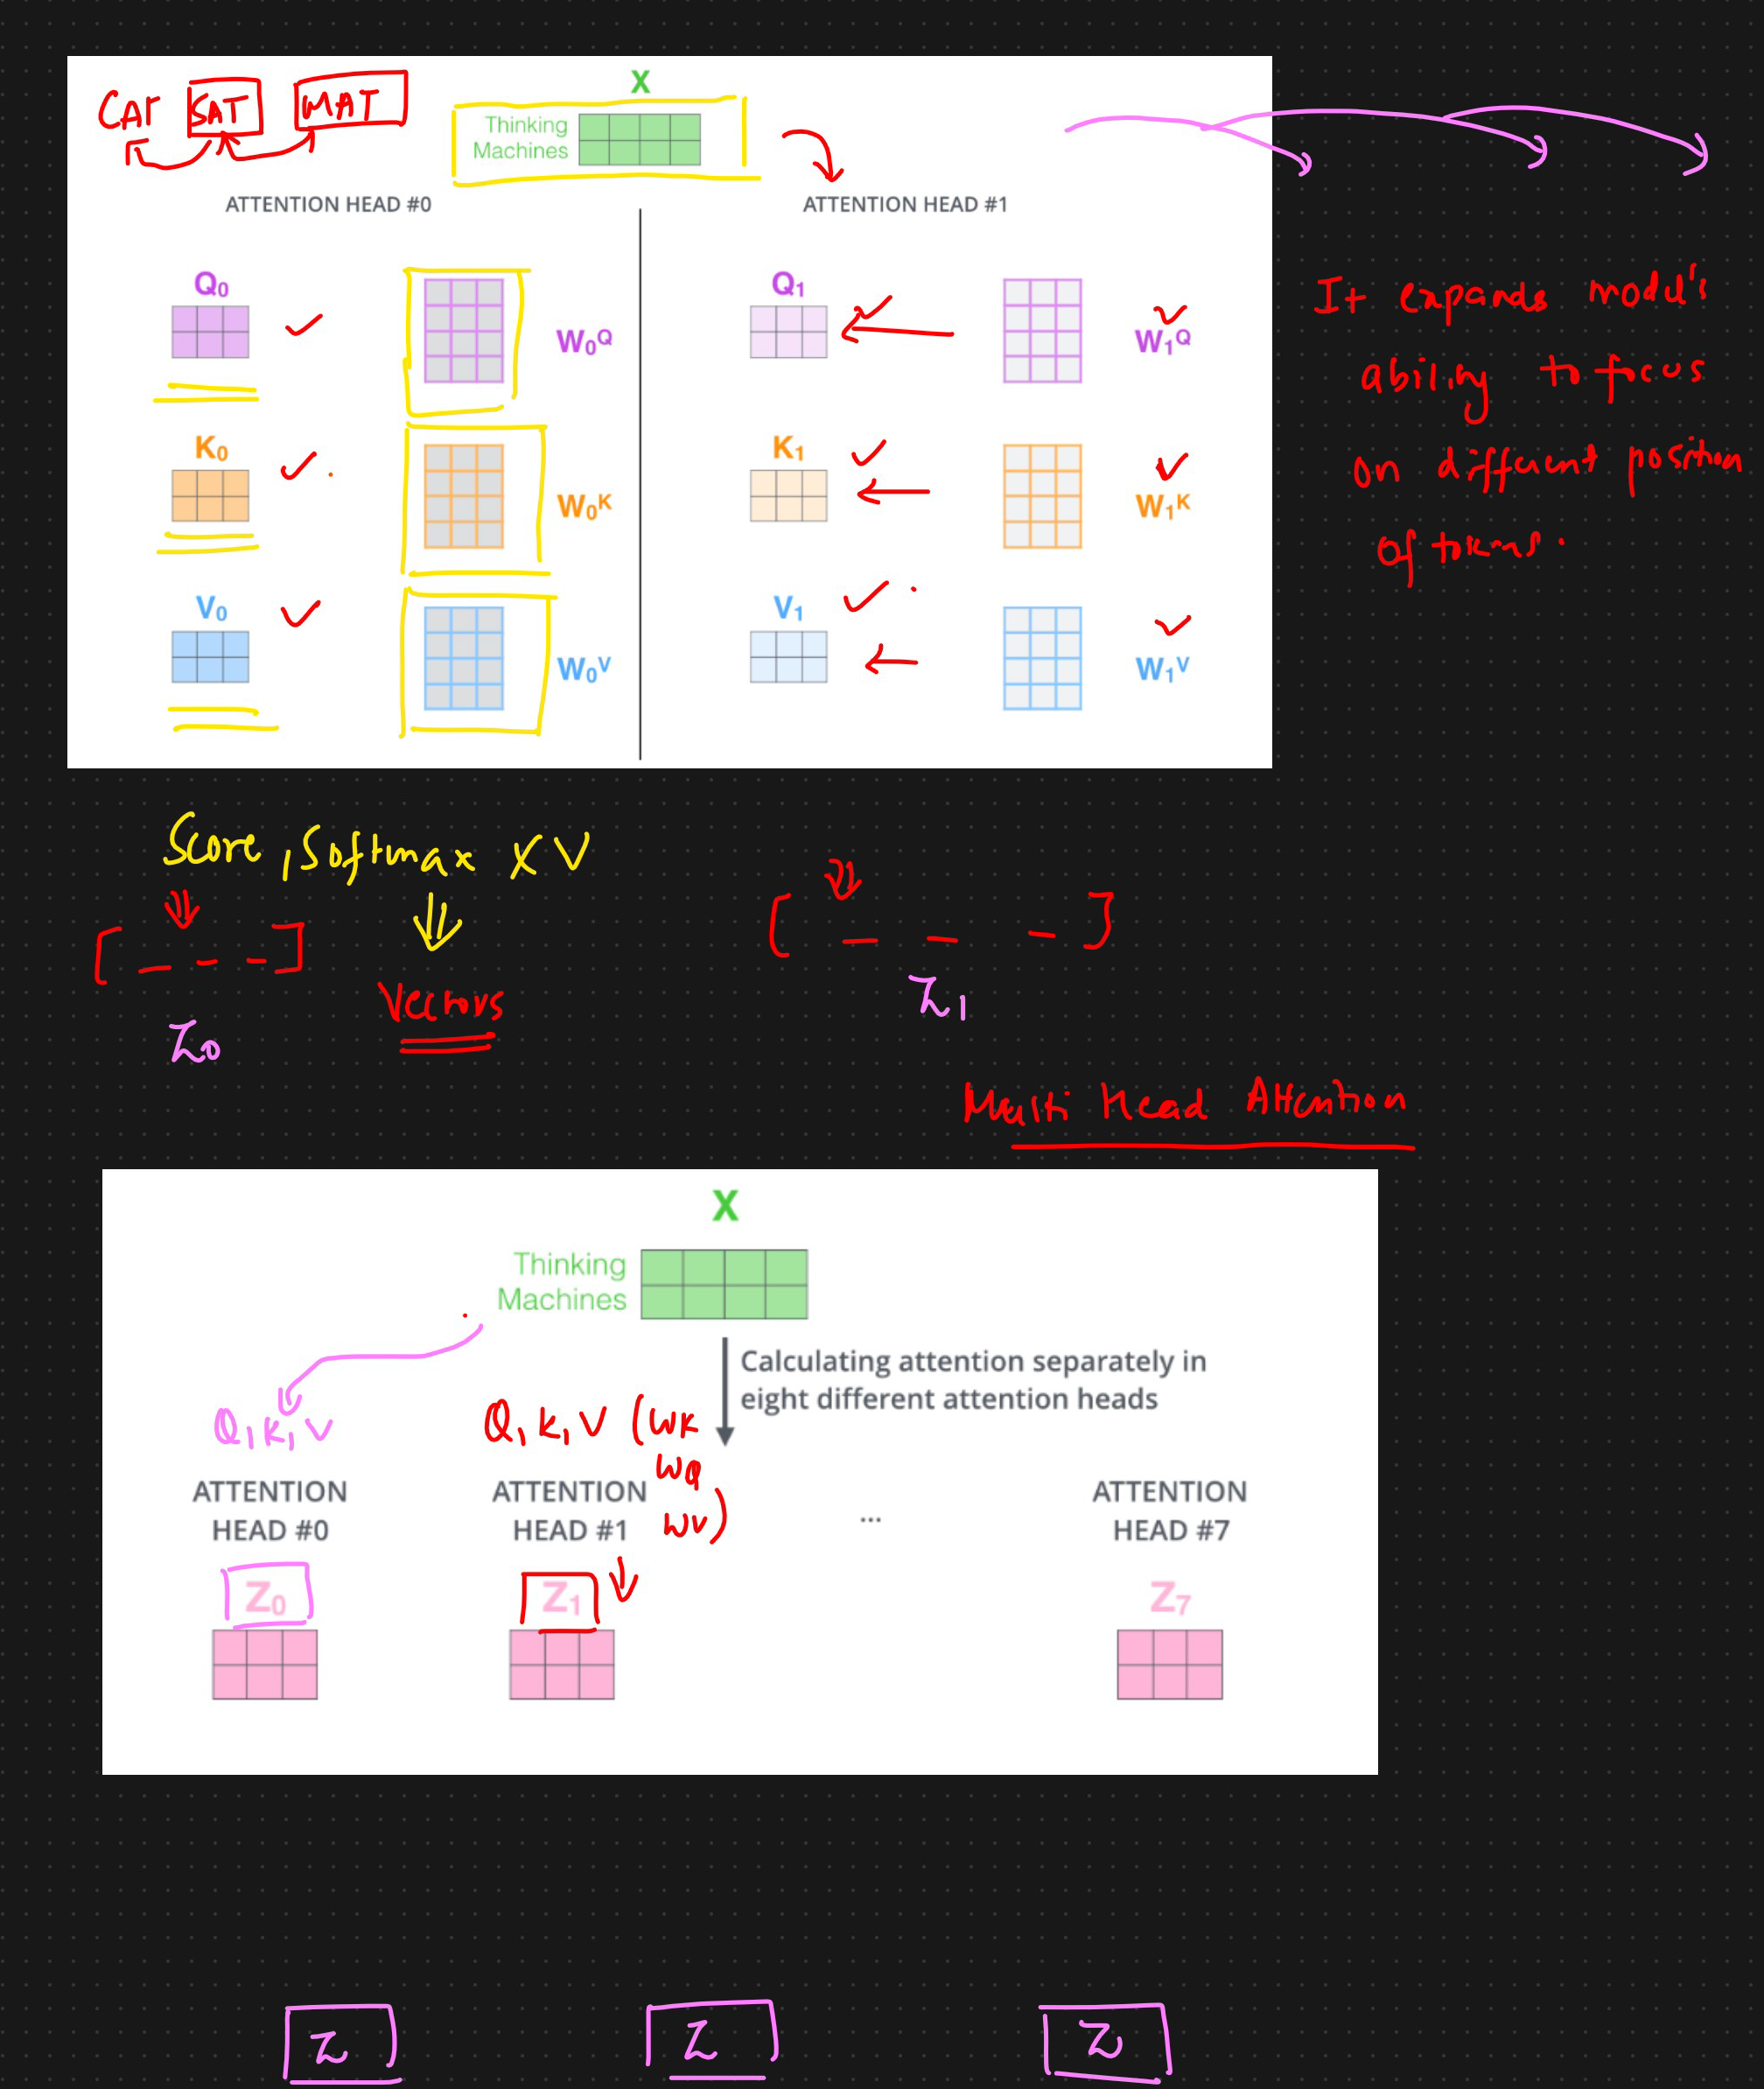 CAr SAT MAT
X
Thinking
Machines
ATTENTION HEAD #0
ATTENTION HEAD #1
Q0
W0Q
Q1
W1Q
K0
W0K
K1
W1K
V0
W0V
V1
W1V
It expands model's
ability to focus
on different position
of tokens.
Score, Softmax X V
[ _ _ _ ]
Vectors
Z0
[ _ _ _ ]
Z1
Multi Head Attention
X
Thinking
Machines
Calculating attention separately in
eight different attention heads
Q, K, V
Q, K, V (WK
WQ
WV)
ATTENTION
HEAD #0
ATTENTION
HEAD #1
...
ATTENTION
HEAD #7
Z0
Z1
Z7
Z
Z
Z